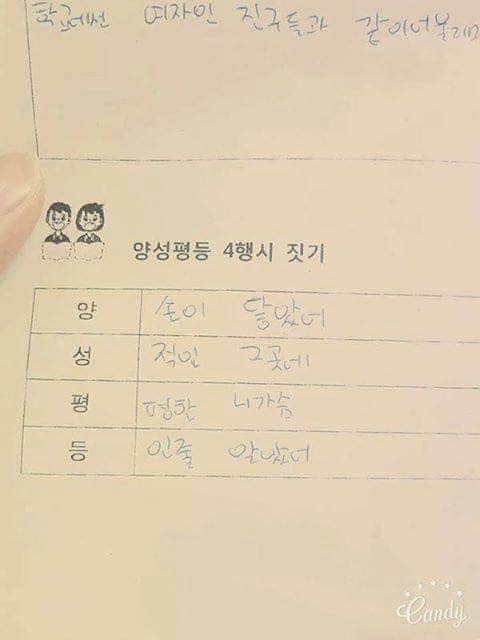 학교에선 여자인 친구들과
양성평등 4행시 짓기
양 손이 닿았어
성 적인 그곳에
평 평한 니가슴
등 인줄 알았어
Candy